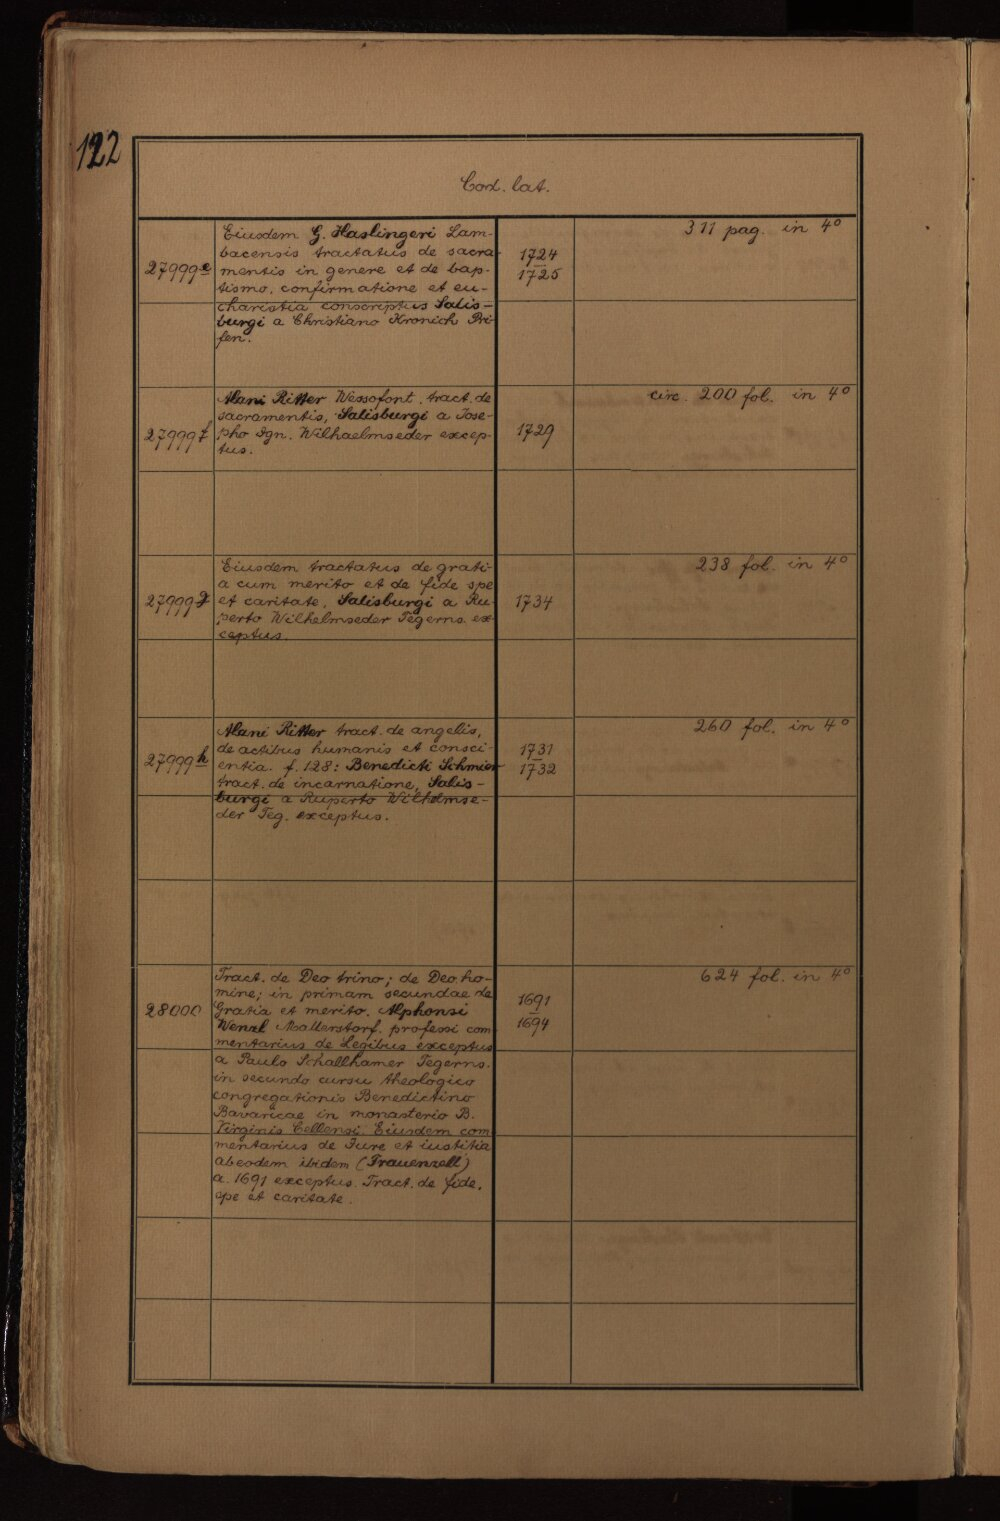 122
Cod. lat.
27999e
Eiusdem G. Haslingeri Lam-
bacensis tractatus de sacra-
mentis in genere et de bap-
tismo, confirmatione et eu-
charistia conscriptus Salis-
burgi a Christiano Kronich Pri-
fen.
1724
1725
311 pag. in 4°
27999f
Alani Ritter Wessofont. tract. de
sacramentis, Salisburgi a Jose-
pho Ign. Wilhaelmseder excep-
tus.
1729
circ. 200 fol. in 4°
27999g
Eiusdem tractatus de grati-
a cum merito et de fide spe
et caritate, Salisburgi a Ru-
perto Wilhelmseder Tegerns. ex-
ceptus.
1734
238 fol. in 4°
27999h
Alani Ritter tract. de angelis,
de actibus humanis et consci-
entia. f. 128: Benedicti Schmier
tract. de incarnatione, Salis-
burgi a Ruperto Wilhelmse-
der Teg. exceptus.
1731
1732
260 fol. in 4°
28000
Tract. de Deo trino; de Deo ho-
mine; in primam secundae de
Gratia et merito. Alphonsi
Wenzl Mallerstorf. professi com-
mentarius de Legibus exceptus
a Paulo Schallhamer Tegerns.
in secundo cursu theologico
congregationis Benedictino
Bavaricae in monasterio B.
Virginis Cellensi. Eiusdem com-
mentarius de Jure et iustitia
ab eodem ibidem (Frauenzell)
a. 1691 exceptus. Tract. de fide,
spe et caritate.
1691
1694
624 fol. in 4°